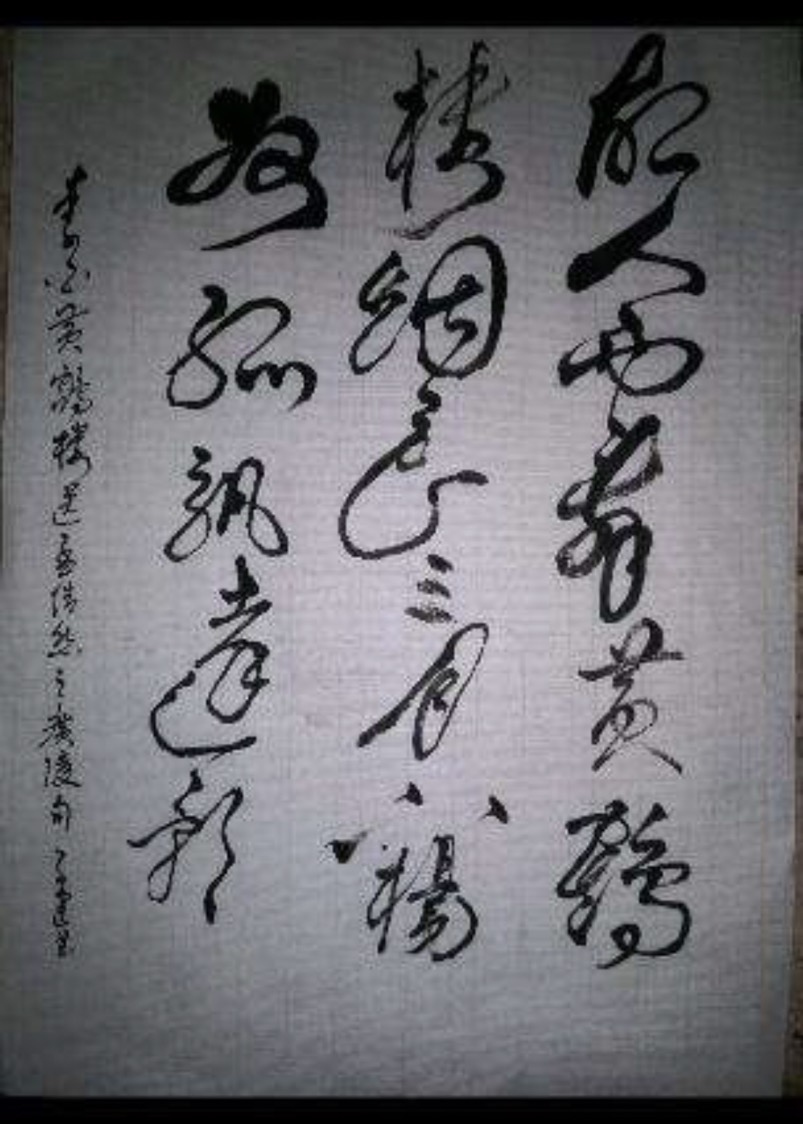 故人西辞黄鶴
楼烟花三月下揚
孤帆遠影
李白黄鶴楼送孟浩然之廣陵句